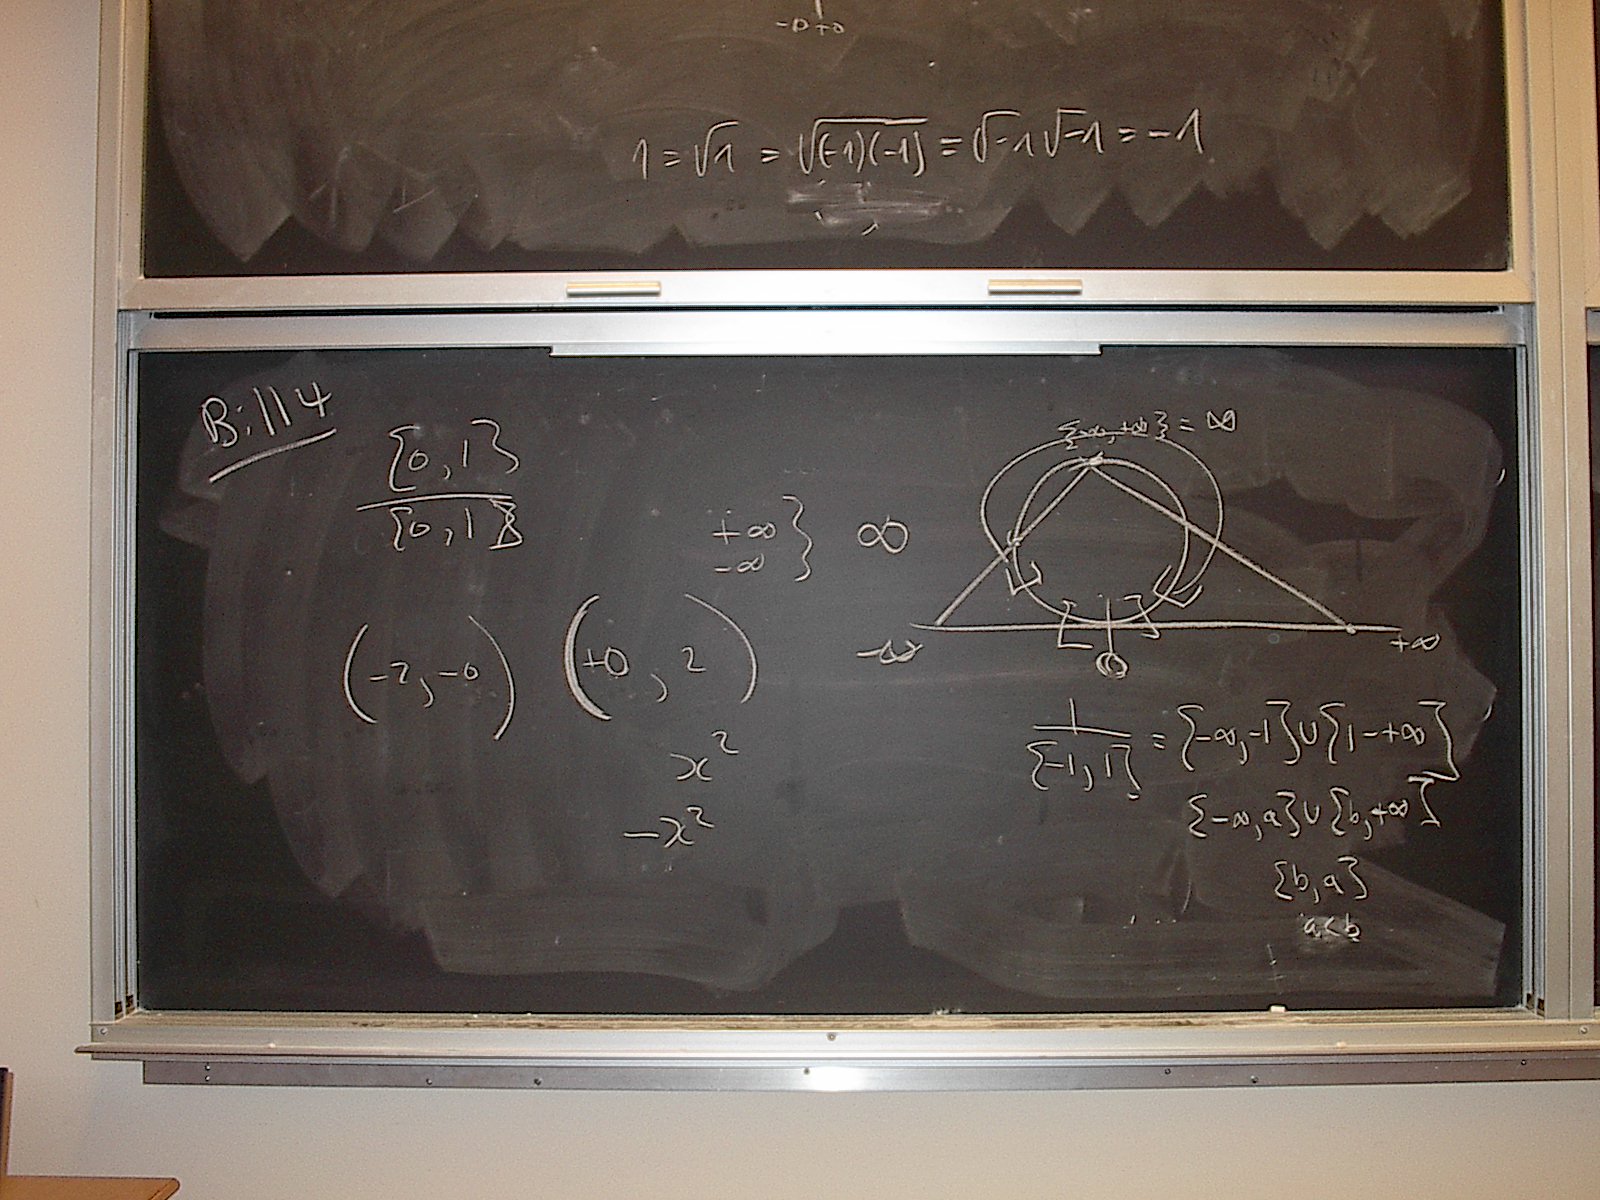 -0 +0
1 = √1 = √(-1)(-1) = √-1 √-1 = -1
Bill 4
{0, 1}
{0, 1}
+∞ } ∞
-∞
{-∞, +∞} = ∞
-∞ 0 +∞
(-2, -0) (+0, 2)
x²
-x²
1
{-1, 1} = {-∞, -1} ∪ {1-+∞}
{-∞, a} ∪ {b, +∞}
{b, a}
a < b